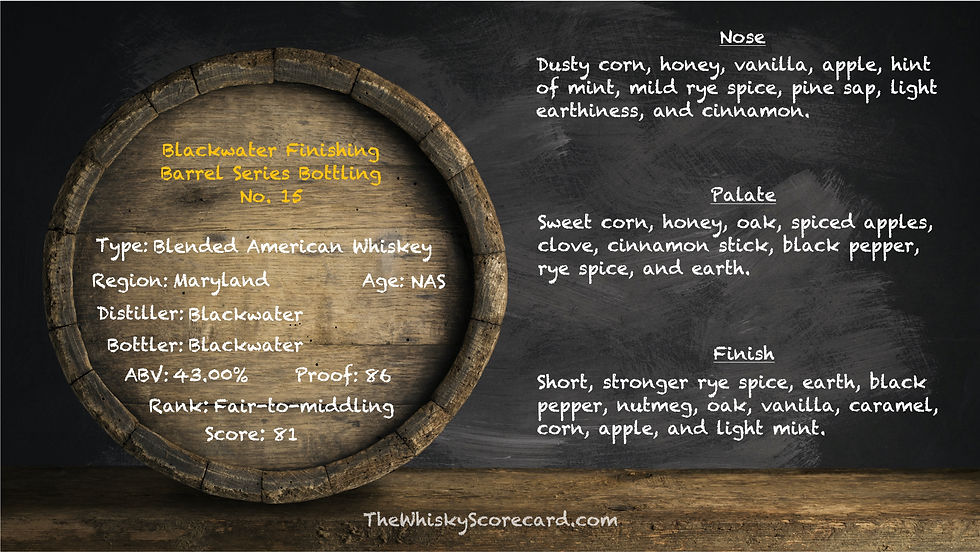 Blackwater Finishing
Barrel Series Bottling
No. 15
Type: Blended American Whiskey
Region: Maryland Age: NAS
Distiller: Blackwater
Bottler: Blackwater
ABV: 43.00% Proof: 86
Rank: Fair-to-middling
Score: 81
Nose
Dusty corn, honey, vanilla, apple, hint
of mint, mild rye spice, pine sap, light
earthiness, and cinnamon.
Palate
Sweet corn, honey, oak, spiced apples,
clove, cinnamon stick, black pepper,
rye spice, and earth.
Finish
Short, stronger rye spice, earth, black
pepper, nutmeg, oak, vanilla, caramel,
corn, apple, and light mint.
TheWhiskyScorecard.com